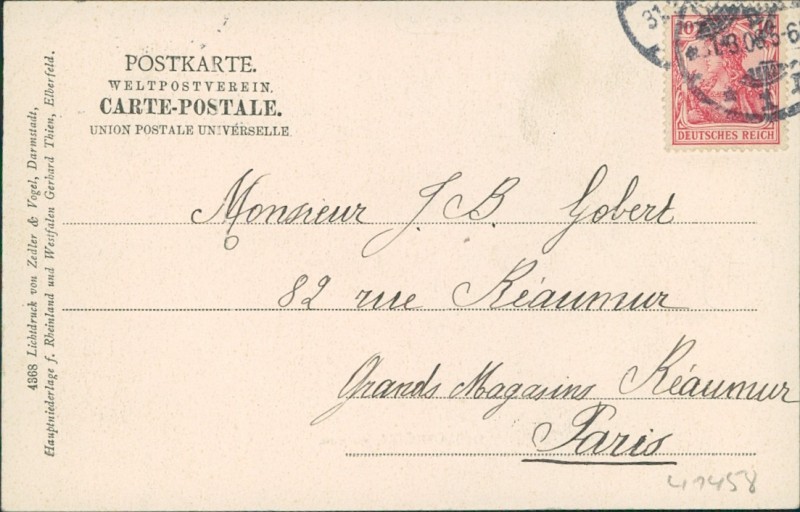 POSTKARTE.
WELTPOSTVEREIN.
CARTE-POSTALE.
UNION POSTALE UNIVERSELLE
DEUTSCHES REICH
Monsieur J. B. Gobert
82 rue Réaumur
Grands Magasins Réaumur
Paris
41458
4368 Lichtdruck von Zedler & Vogel, Darmstadt,
Hauptniederlage f. Rheinland und Westfalen Gerhard Thien, Elberfeld.